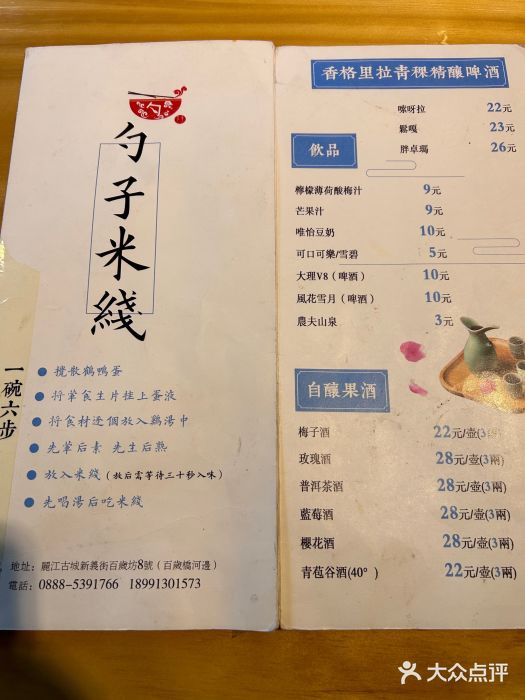 勺
勺子米綫
一碗六步
攪散鶴鴨蛋
将葷食生片挂上蛋液
将食材逐個放入鷄湯中
先葷后素 先生后熟
放入米綫（放后需等待三十秒入味）
先喝湯后吃米綫
地址：麗江古城新義街百歲坊8號（百歲橋河邊）
電話：0888-5391766 18991301573
香格里拉青稞精釀啤酒
嚓呀拉 22元
鬆嘎 23元
胖卓瑪 26元
飲品
檸檬薄荷酸梅汁 9元
芒果汁 9元
唯怡豆奶 10元
可口可樂/雪碧 5元
大理V8（啤酒） 10元
風花雪月（啤酒） 10元
農夫山泉 3元
自釀果酒
梅子酒 22元/壺(3兩)
玫瑰酒 28元/壺(3兩)
普洱茶酒 28元/壺(3兩)
藍莓酒 28元/壺(3兩)
櫻花酒 28元/壺(3兩)
青苞谷酒(40°) 22元/壺(3兩)
大众点评